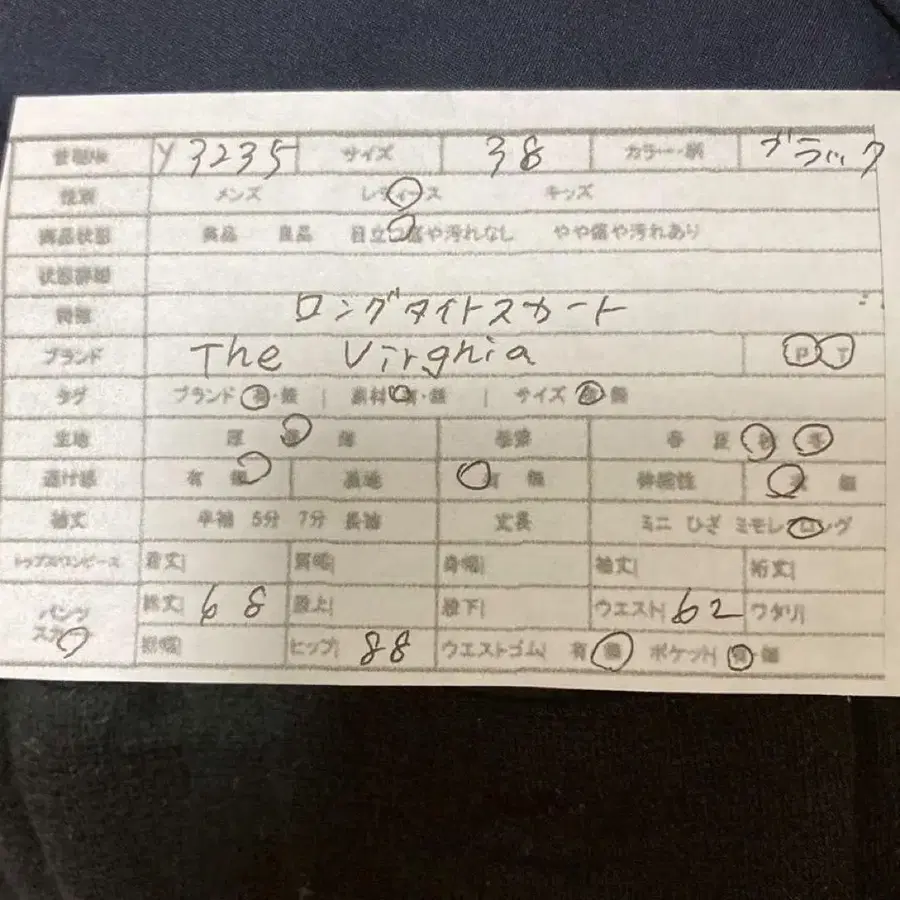 管理No Y3235 サイズ 38 カラー・柄 ブラック
性別 メンズ レディース キッズ
商品状態 美品 良品 目立つ傷や汚れなし やや傷や汚れあり
状態詳細
ロングタイトスカート
ブランド The Virghia P T
タグ ブランド 有・無 | 素材 有・無 | サイズ 有 無
生地 厚 普 薄 季節 春 夏 秋 冬
透け感 有 無 裏地 有 無 伸縮性 有 無
袖丈 半袖 5分 7分 長袖 丈長 ミニ ひざ ミモレ ロング
トップスワンピース 着丈| 肩幅| 身幅| 袖丈| 裄丈|
パンツ 総丈| 68 股上| 股下| ウエスト| 62 ワタリ|
スカート 裾幅| ヒップ| 88 ウエストゴム| 有 無 ポケット| 有・無